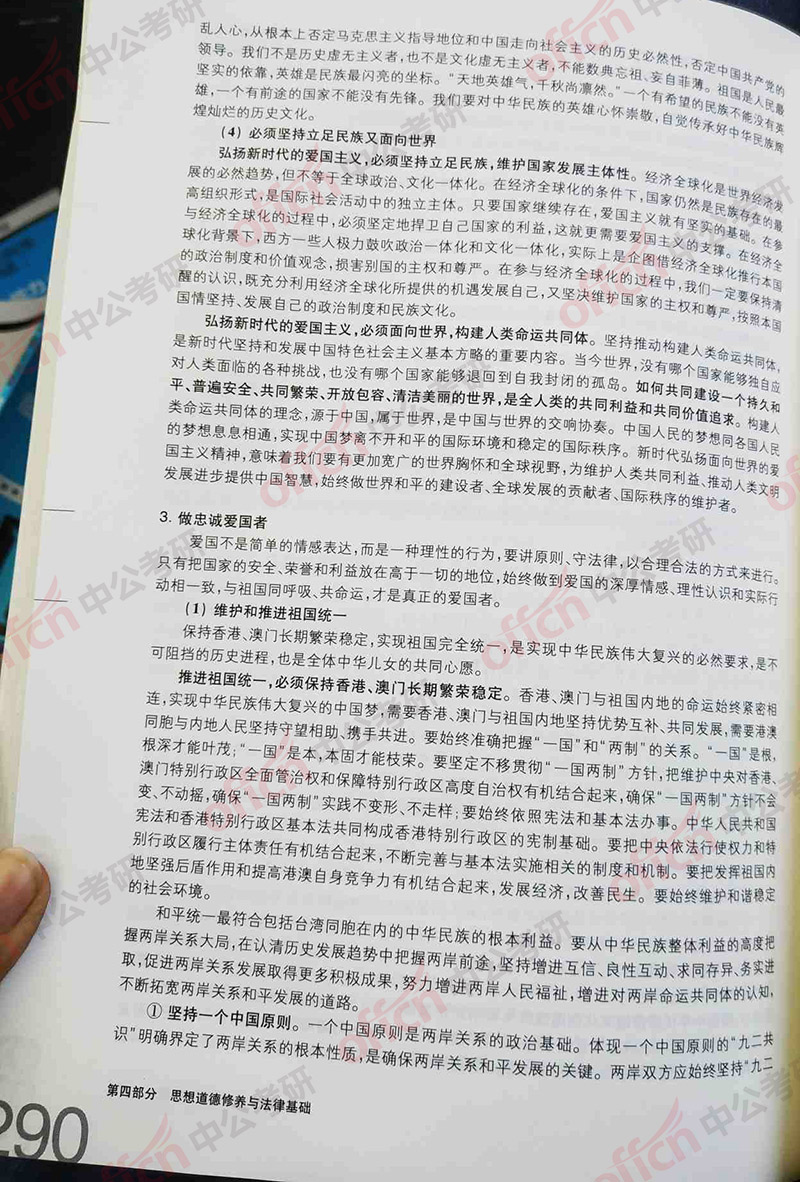 乱人心,从根本上否定马克思主义指导地位和中国走向社会主义的历史必然性,否定中国共产党的
领导。我们不是历史虚无主义者,也不是文化虚无主义者,不能数典忘祖、妄自菲薄。祖国是人民最
坚实的依靠,英雄是民族最闪亮的坐标。“天地英雄气,千秋尚凛然。”一个有希望的民族不能没有英
雄,一个有前途的国家不能没有先锋。我们要对中华民族的英雄心怀崇敬,自觉传承好中华民族辉
煌灿烂的历史文化。
(4) 必须坚持立足民族又面向世界
弘扬新时代的爱国主义,必须坚持立足民族,维护国家发展主体性。经济全球化是世界经济发
展的必然趋势,但不等于全球政治、文化一体化。在经济全球化的条件下,国家仍然是民族存在的最
高组织形式,是国际社会活动中的独立主体。只要国家继续存在,爱国主义就有坚实的基础。在参
与经济全球化的过程中,必须坚定地捍卫自己国家的利益,这就更需要爱国主义的支撑。在经济全
球化背景下,西方一些人极力鼓吹政治一体化和文化一体化,实际上是企图借经济全球化推行本国
的政治制度和价值观念,损害别国的主权和尊严。在参与经济全球化的过程中,我们一定要保持清
醒的认识,既充分利用经济全球化所提供的机遇发展自己,又坚决维护国家的主权和尊严,按照本国
国情坚持、发展自己的政治制度和民族文化。
弘扬新时代的爱国主义,必须面向世界,构建人类命运共同体。坚持推动构建人类命运共同体,
是新时代坚持和发展中国特色社会主义基本方略的重要内容。当今世界,没有哪个国家能够独自应
对人类面临的各种挑战,也没有哪个国家能够退回到自我封闭的孤岛。如何共同建设一个持久和
平、普遍安全、共同繁荣、开放包容、清洁美丽的世界,是全人类的共同利益和共同价值追求。构建人
类命运共同体的理念,源于中国,属于世界,是中国与世界的交响协奏。中国人民的梦想同各国人民
的梦想息息相通,实现中国梦离不开和平的国际环境和稳定的国际秩序。新时代弘扬面向世界的爱
国主义精神,意味着我们要有更加宽广的世界胸怀和全球视野,为维护人类共同利益、推动人类文明
发展进步提供中国智慧,始终做世界和平的建设者、全球发展的贡献者、国际秩序的维护者。
3. 做忠诚爱国者
爱国不是简单的情感表达,而是一种理性的行为,要讲原则、守法律,以合理合法的方式来进行。
只有把国家的安全、荣誉和利益放在高于一切的地位,始终做到爱国的深厚情感、理性认识和实际行
动相一致,与祖国同呼吸、共命运,才是真正的爱国者。
(1) 维护和推进祖国统一
保持香港、澳门长期繁荣稳定,实现祖国完全统一,是实现中华民族伟大复兴的必然要求,是不
可阻挡的历史进程,也是全体中华儿女的共同心愿。
推进祖国统一,必须保持香港、澳门长期繁荣稳定。香港、澳门与祖国内地的命运始终紧密相
连,实现中华民族伟大复兴的中国梦,需要香港、澳门与祖国内地坚持优势互补、共同发展,需要港澳
同胞与内地人民坚持守望相助、携手共进。要始终准确把握“一国”和“两制”的关系。“一国”是根,
根深才能叶茂;“一国”是本,本固才能枝荣。要坚定不移贯彻“一国两制”方针,把维护中央对香港、
澳门特别行政区全面管治权和保障特别行政区高度自治权有机结合起来,确保“一国两制”方针不会
变、不动摇,确保“一国两制”实践不变形、不走样;要始终依照宪法和基本法办事。中华人民共和国
宪法和香港特别行政区基本法共同构成香港特别行政区的宪制基础。要把中央依法行使权力和特
别行政区履行主体责任有机结合起来,不断完善与基本法实施相关的制度和机制。要把发挥祖国内
地坚强后盾作用和提高港澳自身竞争力有机结合起来,发展经济,改善民生。要始终维护和谐稳定
的社会环境。
和平统一最符合包括台湾同胞在内的中华民族的根本利益。要从中华民族整体利益的高度把
握两岸关系大局,在认清历史发展趋势中把握两岸前途,坚持增进互信、良性互动、求同存异、务实进
取,促进两岸关系发展取得更多积极成果,努力增进两岸人民福祉,增进对两岸命运共同体的认知,
不断拓宽两岸关系和平发展的道路。
① 坚持一个中国原则。一个中国原则是两岸关系的政治基础。体现一个中国原则的“九二共
识”明确界定了两岸关系的根本性质,是确保两岸关系和平发展的关键。两岸双方应始终坚持“九二
第四部分 思想道德修养与法律基础
290
offcn 中公考研